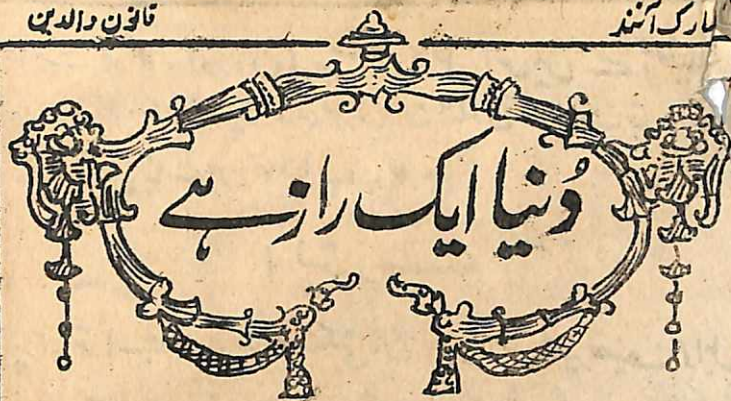 مارک آنند
قانون والدین
دُنیا ایک راز ہے